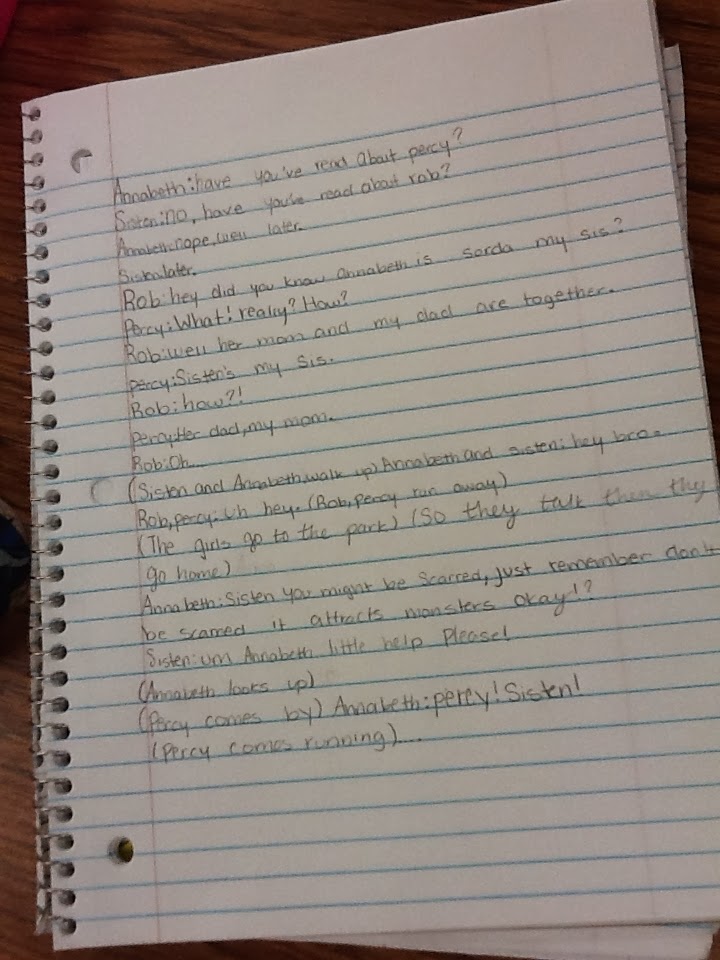 Annabeth:have you've read about percy?
Sisten:no, have you've read about rob?
Annabeth:nope, well later.
Sisten:later.
Rob:hey did you know annabeth is sorda my sis?
Percy:What! really? How?
Rob:well her mom and my dad are together.
percy:Sisten's my sis.
Rob:how?!
percy:Her dad, my mom.
Rob:Oh...
(Sisten and Annabeth walk up) Annabeth and sisten: hey bro.
Rob, percy: Uh hey. (Rob, Percy run away)
(The girls go to the park) (So they talk then thy
go home)
Annabeth:Sisten you might be scarred, just remember don't
be scarred it attracts monsters okay!?
Sisten:um Annabeth little help please!
(Annabeth looks up)
(Percy comes by) Annabeth:percy! Sisten!
(Percy comes running)...